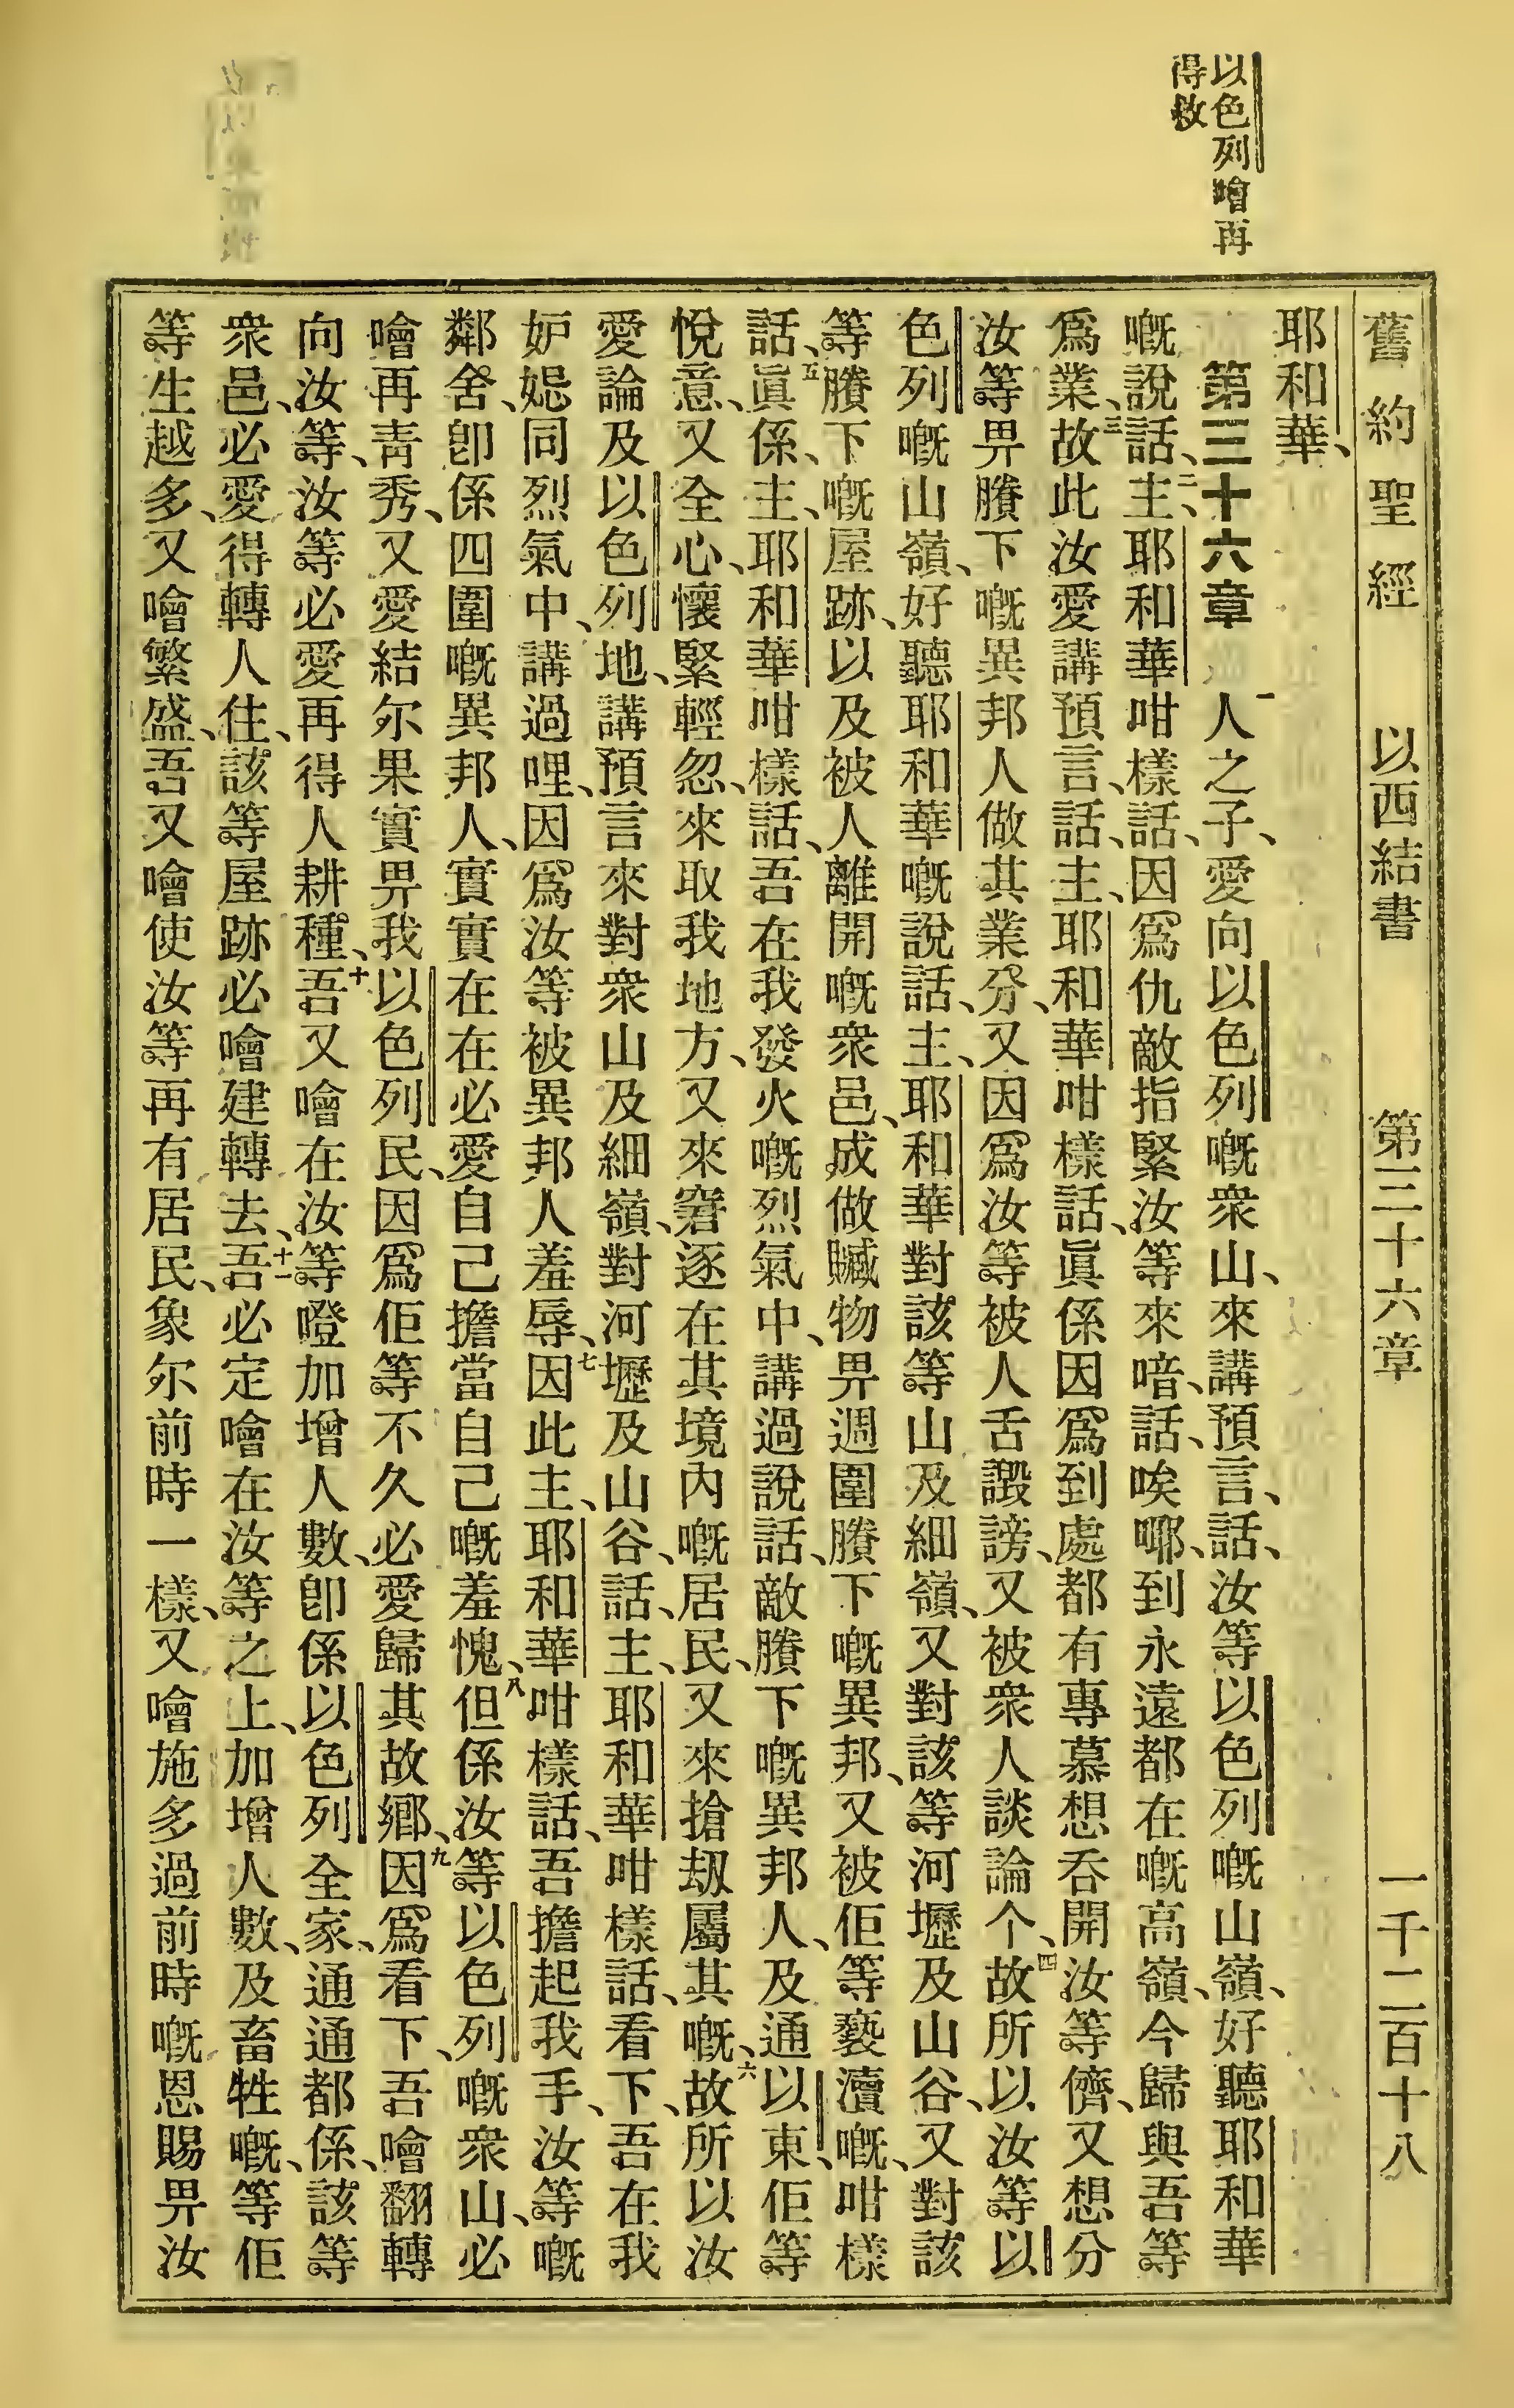 以色列噲再
得救
舊約聖經 以西結書 第三十六章 一千二百十八
耶和華、
第三十六章 一人之子、愛向以色列嘅衆山、來講預言、話、汝等以色列嘅山嶺、好聽耶和華
嘅說話、二主、耶和華咁樣話、因爲仇敵指緊汝等來喑、話、唉㖿、到永遠都在嘅高嶺、今歸與吾等
爲業、三故此汝愛講預言、話、主、耶和華咁樣話、眞係因爲到處都有專慕想吞開汝等儕、又想分
汝等畀賸下嘅異邦人做其業分、又因爲汝等被人舌譭謗、又被衆人談論个、四故所以汝等以
色列嘅山嶺、好聽耶和華嘅說話、主、耶和華對該等山及細嶺、又對該等河壢及山谷、又對該
等賸下嘅屋跡、以及被人離開嘅衆邑、成做贓物畀週圍賸下嘅異邦、又被佢等褻瀆嘅、咁樣
話、五眞係、主、耶和華咁樣話、吾在我發火嘅烈氣中、講過說話、敵賸下嘅異邦人、及通以東、佢等
悅意、又全心、懷緊輕忽、來取我地方、又來窘逐在其境內嘅居民、又來搶刼屬其嘅、六故所以汝
愛論及以色列地、講預言來對衆山及細嶺、對河壢及山谷、話、主、耶和華咁樣話、看下、吾在我
妒𢗼同烈氣中、講過哩、因爲汝等被異邦人羞辱、七因此主、耶和華咁樣話、吾擔起我手、汝等嘅
鄰舍、卽係四圍嘅異邦人、實實在在必愛自己擔當自己嘅羞愧、八但係汝等以色列嘅衆山、必
噲再靑秀、又愛結尔果實畀我以色列民、因爲佢等不久必愛歸其故鄉、九因爲看下、吾噲翻轉
向汝等、汝等必愛再得人耕種、十吾又噲在汝等嶝加增人數、卽係以色列全家、通通都係、該等
衆邑、必愛得轉人住、該等屋跡必噲建轉去、十一吾必定噲在汝等之上、加增人數、及畜牲嘅、等佢
等生越多、又噲繁盛、吾又噲使汝等再有居民、象尔前時一樣、又噲施多過前時嘅恩賜畀汝